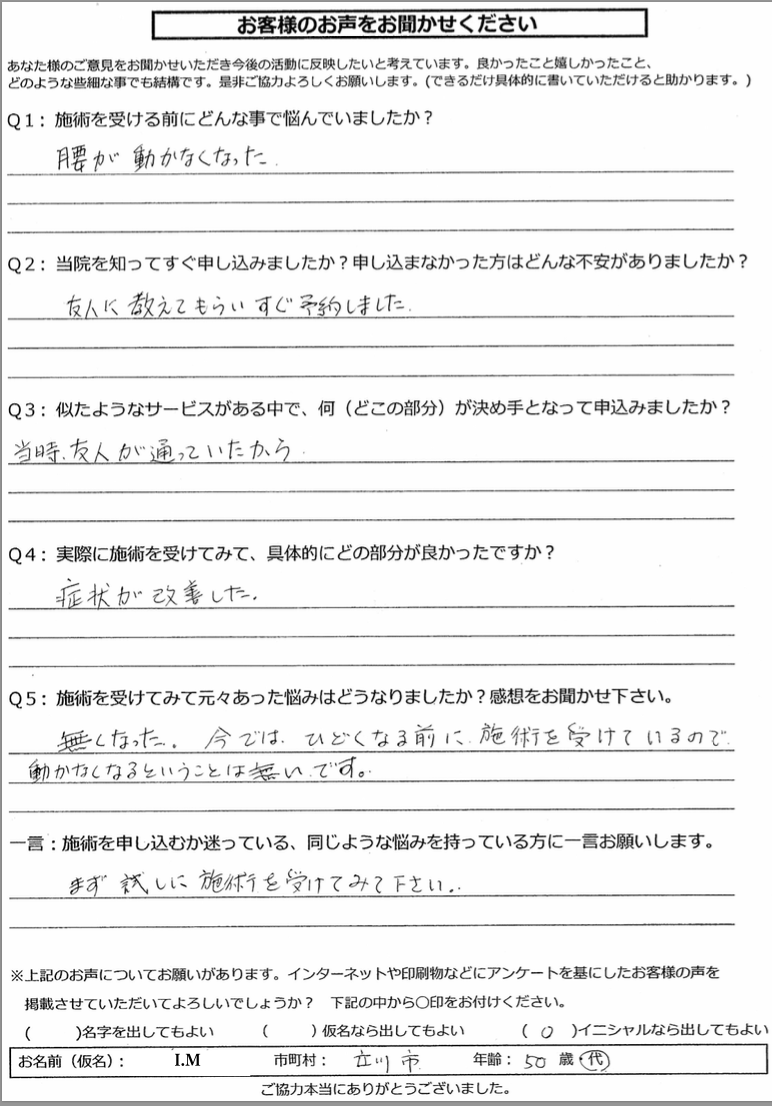 お客様のお声をお聞かせください
あなた様のご意見をお聞かせいただき今後の活動に反映したいと考えています。良かったこと嬉しかったこと、
どのような些細な事でも結構です。是非ご協力よろしくお願いします。(できるだけ具体的に書いていただけると助かります。)
Q1：施術を受ける前にどんな事で悩んでいましたか？
腰が動かなくなった.
Q2：当院を知ってすぐ申し込みましたか？申し込まなかった方はどんな不安がありましたか？
友人に教えてもらいすぐ予約しました.
Q3：似たようなサービスがある中で、何（どこの部分）が決め手となって申込みましたか？
当時、友人が通っていたから.
Q4：実際に施術を受けてみて、具体的にどの部分が良かったですか？
症状が改善した。
Q5：施術を受けてみて元々あった悩みはどうなりましたか？感想をお聞かせ下さい。
無くなった。今では、ひどくなる前に、施術を受けているので、
動かなくなるということは無いです。
一言：施術を申し込むか迷っている、同じような悩みを持っている方に一言お願いします。
まず試しに施術を受けてみて下さい。
※上記のお声についてお願いがあります。インターネットや印刷物などにアンケートを基にしたお客様の声を
掲載させていただいてよろしいでしょうか？ 下記の中から〇印をお付けください。
( )名字を出してもよい ( )仮名なら出してもよい ( 〇 )イニシャルなら出してもよい
お名前（仮名）： I.M 市町村： 立川市 年齢： 50 歳 代
ご協力本当にありがとうございました。